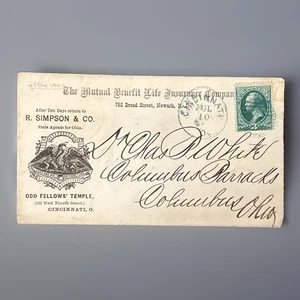 The Mutual Benefit Life Insurance Company
752 Broad Street, Newark, N.J.
After Ten Days return to
R. SIMPSON & CO.
State Agents for Ohio.
ODD FELLOWS' TEMPLE,
West Fourth Street,
CINCINNATI, O.
CINCINNATI
10
O.
Chas P. White
Columbus Barracks
Columbus
Ohio